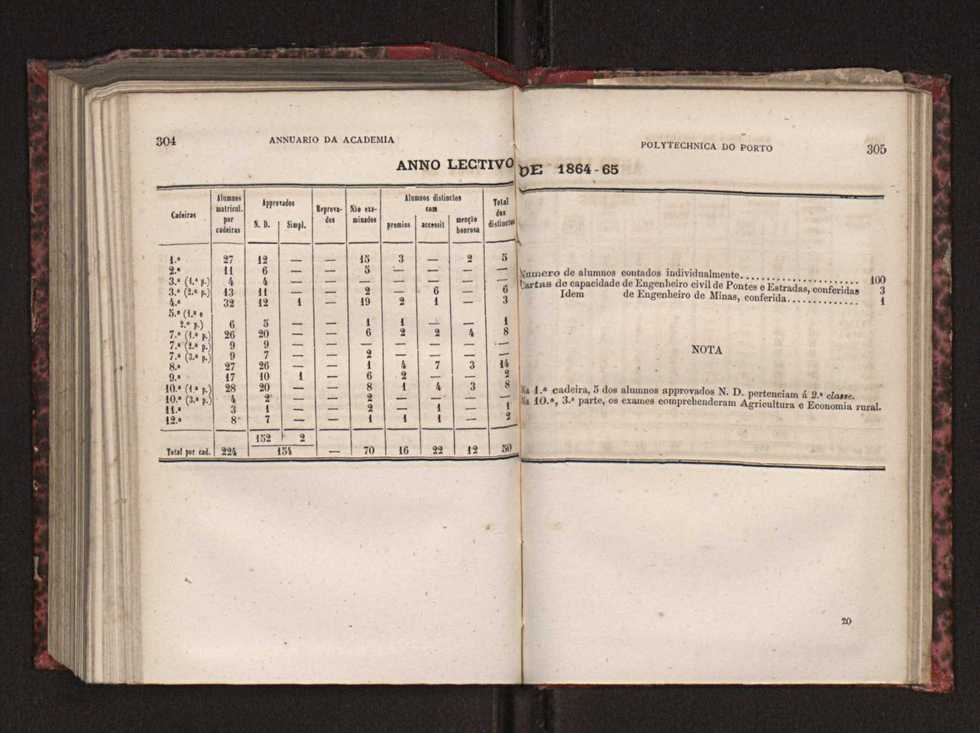 304 ANNUARIO DA ACADEMIA
ANNO LECTIVO
Cadeiras | Alumnos matricul. por cadeiras | Approvados N. D. | Approvados Simpl. | Reprovados | Não examinados | Alumnos distinctos com premios | accessit | menção honrosa | Total dos distinctos
1.ª 27 12 — — 15 3 — 2 5
2.ª 11 6 — — 5 — — — —
3.ª (1.ª p.) 4 4 — — — — — — —
3.ª (2.ª p.) 13 11 — — 2 — 6 — 6
4.ª 32 12 1 — 19 2 1 — 3
5.ª (1.ª e
2.ª p.) 6 5 — — 1 1 — — 1
7.ª (1.ª p.) 26 20 — — 6 2 2 4 8
7.ª (2.ª p.) 9 9 — — — — — — —
7.ª (3.ª p.) 9 7 — — 2 — — — —
8.ª 27 26 — — 1 4 7 3 14
9.ª 17 10 1 — 6 2 — — 2
10.ª (1.ª p.) 28 20 — — 8 1 4 3 8
10.ª (3.ª p.) 4 2 — — 2 — — — —
11.ª 3 1 — — 2 — 1 — 1
12.ª 8 7 — — 1 1 1 — 2
152 2
Total por cad. 224 154 — 70 16 22 12 50
POLYTECHNICA DO PORTO 305
DE 1864-65
Numero de alumnos contados individualmente. . . . . . . . . . . . . . . . . 100
Cartas de capacidade de Engenheiro civil de Pontes e Estradas, conferidas 3
Idem de Engenheiro de Minas, conferida. . . . . . . . . . . . . . 1
NOTA
Na 1.ª cadeira, 5 dos alumnos approvados N. D. pertenciam á 2.ª classe.
Na 10.ª, 3.ª parte, os exames comprehenderam Agricultura e Economia rural.
20